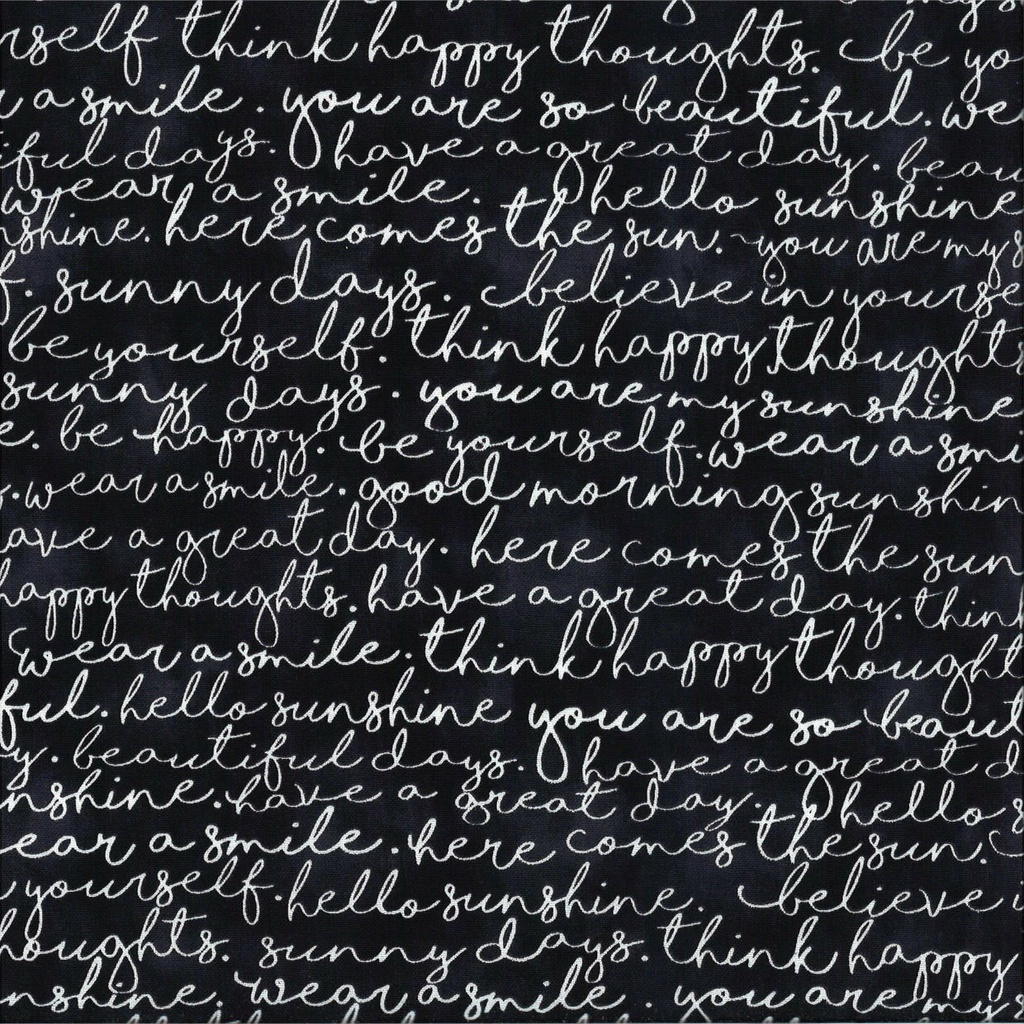 rself think happy thoughts. be yo
a smile. you are so beautiful. we
iful days. have a great day. beau
wear a smile. hello sunshine
nshine. here comes the sun. you are my s
f. sunny days. believe in yourse
be yourself. think happy thought
sunny days. you are my sunshine
e. be happy. be yourself. wear a smi
. wear a smile. good morning sunshin
ave a great day. here comes the sun
happy thoughts. have a great day. thin
wear a smile. think happy thought
ful. hello sunshine you are so beaut
y. beautiful days. have a great d
nshine. have a great day. hello s
ear a smile. here comes the sun.
yourself. hello sunshine. believe i
houghts. sunny days. think happy
nshine. wear a smile. you are my s